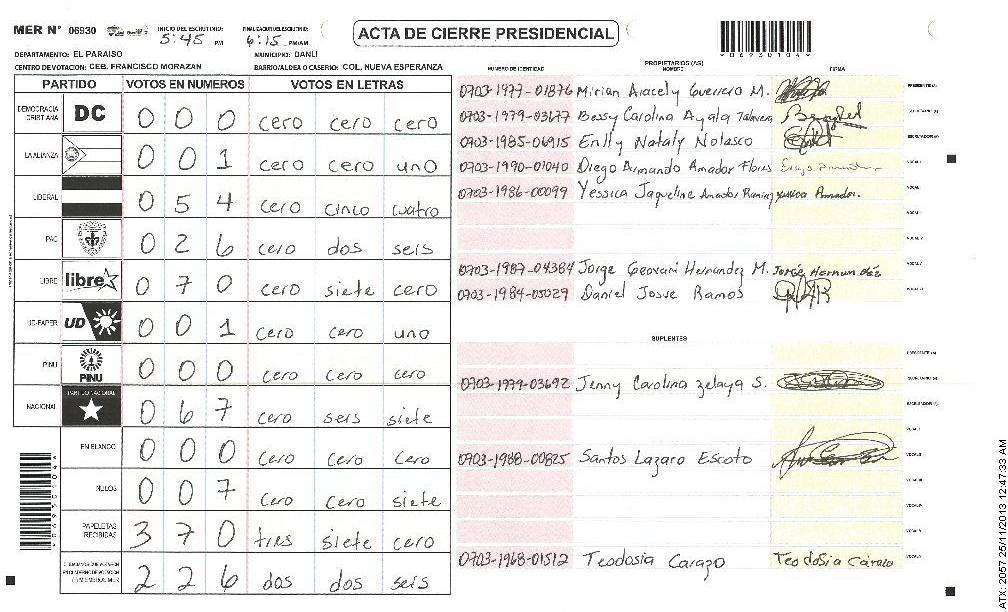 MER N° 06930 INICIO DEL ESCRUTINIO: 5:45 PM FINALIZACION DEL ESCRUTINIO: 6:15 PM/AM
ACTA DE CIERRE PRESIDENCIAL
*06930104*
DEPARTAMENTO: EL PARAISO MUNICIPIO: DANLI
CENTRO DE VOTACION: CEB. FRANCISCO MORAZAN BARRIO/ALDEA O CASERIO: COL. NUEVA ESPERANZA
PARTIDO VOTOS EN NUMEROS VOTOS EN LETRAS
DEMOCRACIA CRISTIANA DC 0 0 0 cero cero cero
LA ALIANZA 0 0 1 cero cero uno
LIBERAL 0 5 4 cero cinco cuatro
PAC 0 2 6 cero dos seis
LIBRE libre 0 7 0 cero siete cero
UD-FAPER UD 0 0 1 cero cero uno
PINU PINU 0 0 0 cero cero cero
NACIONAL PARTIDO NACIONAL 0 6 7 cero seis siete
EN BLANCO 0 0 0 cero cero cero
NULOS 0 0 7 cero cero siete
PAPELETAS RECIBIDAS 3 7 0 tres siete cero
2 2 6 dos dos seis
PROPIETARIOS (AS)
NUMERO DE IDENTIDAD NOMBRE FIRMA
0703-1977-01876 Mirian Aracely Guerrero M. PRESIDENTE (A)
0703-1979-03177 Bessy Carolina Ayala Talavera SECRETARIO (A)
0703-1985-06915 Enlly Nataly Nolasco ESCRUTADOR (A)
0703-1990-01040 Diego Armando Amador Flores VOCAL I
0703-1986-00099 Yessica Jaqueline Amador Ramirez Yessica Amador.
0703-1987-04384 Jorge Geovani Hernandez M. Jorge Hernandez
0703-1984-05029 Daniel Josue Ramos
SUPLENTES
PRESIDENTE (A)
0703-1979-03692 Jenny Carolina Zelaya S. SECRETARIO (A)
ESCRUTADOR (A)
0703-1988-00825 Santos Lazaro Escoto
0703-1968-01512 Teodosia Carazo Teodosia Carazo
ATX: 2057 25/11/2013 12:47:33 AM